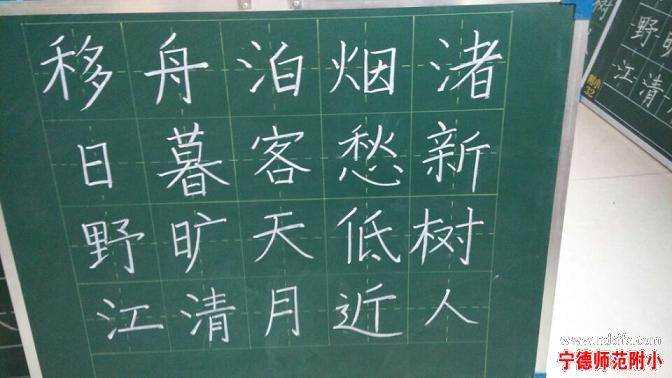 移舟泊烟渚
日暮客愁新
野旷天低树
江清月近人
树
野旷
江清
附小
32
宁德师范附小